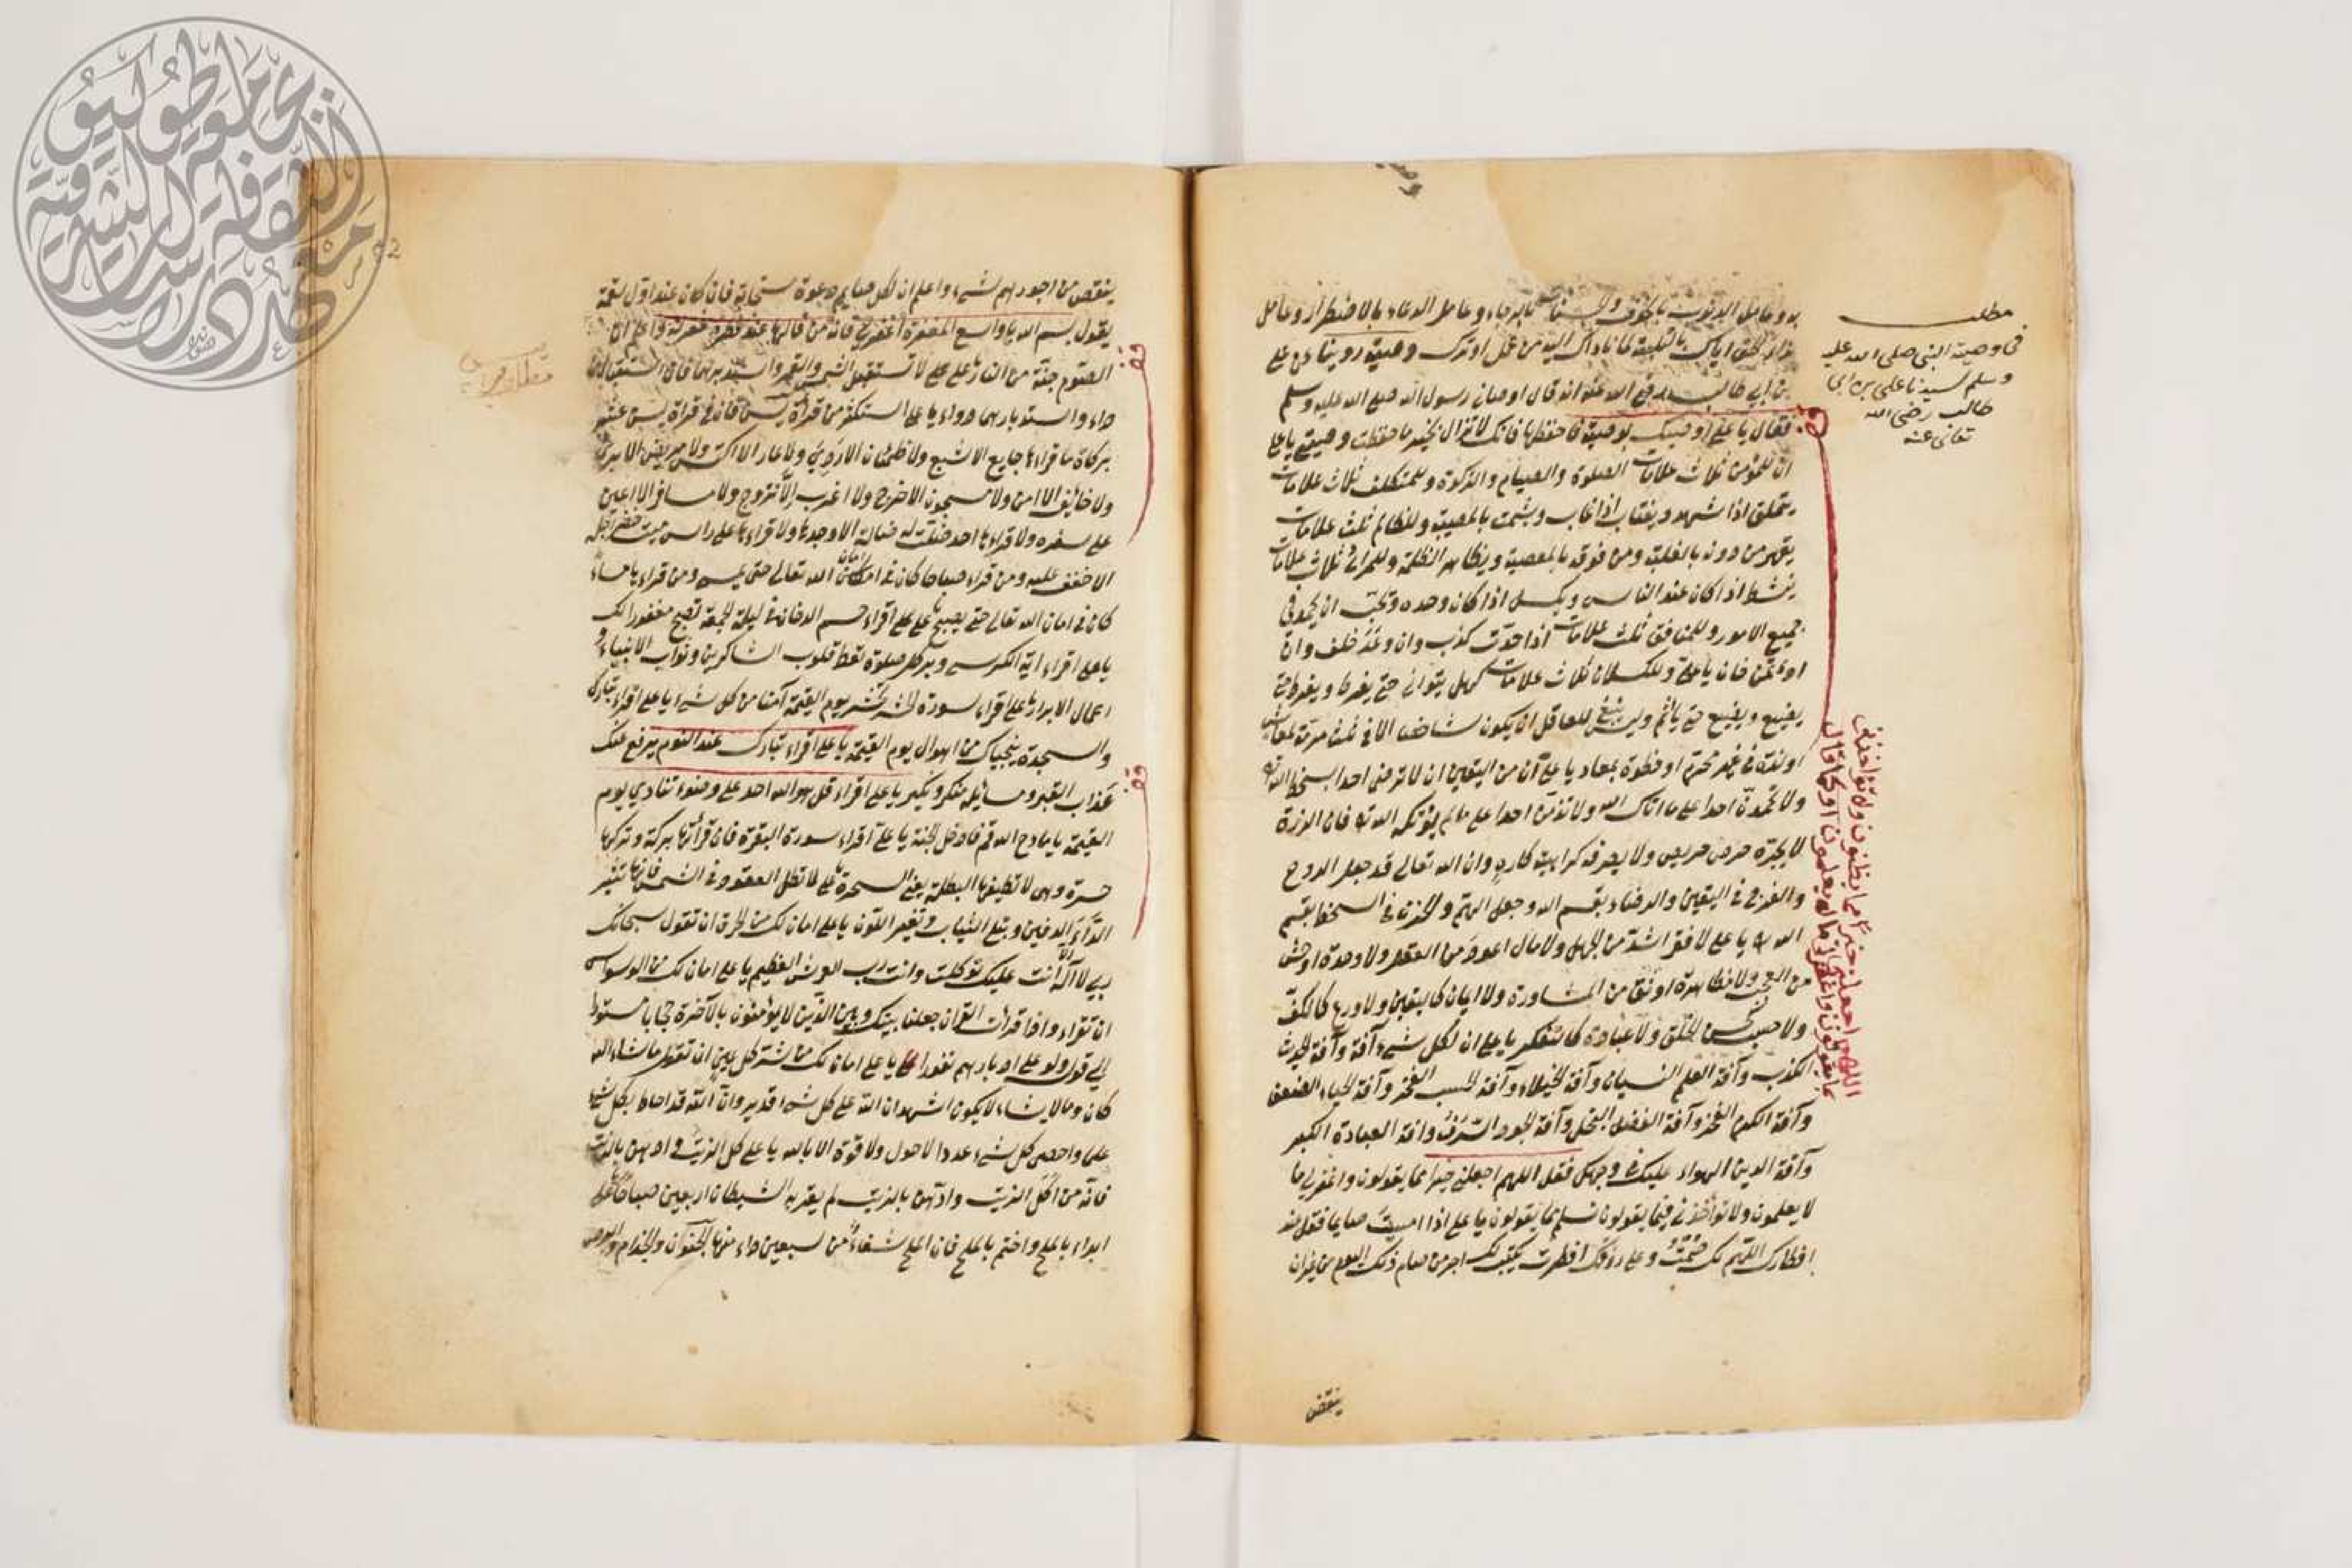 مطلب
في وصية النبي صلى الله عليه
وسلم سيدنا علي بن ابي
طالب رضي الله
تعالى عنه
به وعامل الذنوب بالخوف والحسنات بالرجاء وعامل الدعاء بالاضطرار وعامل
وصية روينا عن علي
بن ابي طالب رضي الله عنه انه قال اوصاني رسول الله صلى الله عليه وسلم
فقال يا علي اوصيك بوصية فاحفظها فانك لا تزال بخير ما حفظت وصيتي يا علي
ان للمؤمن ثلاث علامات الصلوة والصيام والزكوة وللمتكلف ثلاث علامات
يتملق اذا شهد ويغتاب اذا غاب ويشمت بالمصيبة وللظالم ثلث علامات
يقهر من دونه بالغلبة ومن فوقه بالمعصية ويظاهر الظلمة وللمرائي ثلاث علامات
ينشط اذا كان عند الناس ويكسل اذا كان وحده ويحب ان يحمد في
جميع الامور وللمنافق ثلث علامات اذا حدث كذب وان وعد خلف وان
اوئتمن خان يا علي وللكسلان ثلاث علامات يتوانى حتى يفرط ويفرط حتى
يضيع ويضيع حتى يأثم وليس ينبغي للعاقل ان يكون شاخصا الا في ثلث مرمة لمعاش
او لذة في غير محرم او خطوة لمعاد يا علي ان من اليقين ان لا ترضي احدا بسخط الله
ولا تحمدن احدا على ما اتاك الله ولا تذمن احدا على ما لم يؤتكه الله فان الرزق
لا يجره حرص حريص ولا يصرفه كراهية كاره وان الله تعالى قد جعل الروح
والفرج في اليقين والرضاء بقسم الله وجعل الهم والحزن في السخط بقسم
الله يا علي لا فقر اشد من الجهل ولا مال اعود من العقل ولا وحدة اوحش
من العجب ولا مظاهرة اوثق من المشاورة ولا ايمان كاليقين ولا ورع كالكف
ولا حسب كحسن الخلق ولا عبادة كالتفكر يا علي ان لكل شيء آفة وآفة الحديث
الكذب وآفة العلم النسيان وآفة الحسب الفخر وآفة الحياء الضعف
وآفة الكرم الفخر وآفة الفضل البخل وآفة الجود السرف وآفة العبادة الكبر
وآفة الدين الهواء عليك في وجهك فقل اللهم اجعلني خيرا مما يقولون واغفر لي ما
لا يعلمون ولا تؤاخذني فيما يقولون تسلم مما يقولون يا علي اذا امسيت صايما فقل عند
افطارك اللهم لك صمت وعلى رزقك افطرت يكتب لك اجر من صام ذلك اليوم من غير ان
اللهم اجعلني خيرا مما يظنون ولا تؤاخذني
بما يقولون واغفر لي ما لا يعلمون او كما قال
ينقص
ينقص من اجورهم شيء واعلم ان لكل صايم دعوة مستجابة فان كان عند اول لقمة
يقول بسم الله يا واسع المغفرة اغفر لي فانه من قالها عند فطره غفر له واعلم ان
الصوم جنة من النار يا علي لا تستقبل الشمس والقمر واستدبرهما فان استقبالهما
داء واستدبارهما دواء يا علي استكثر من قراة يس فان في قراة يس عشر
بركات ما قراءها جايع الا شبع ولا ظمئان الا روي ولا عار الا اكتسى ولا مريض الا برئ
ولا خائف الا امن ولا مسجون الا خرج ولا اعزب الا تزوج ولا مسافر الا اعين
على سفره ولا قراءها احد ضلت له ضالة الا وجدها ولا قراءها على راس ميت حضر اجله
الا خفف عليه ومن قراء صباحا كان في امان الله تعالى حتى يمسي ومن قراءها مساء
كان في امان الله تعالى حتى يصبح يا علي اقراء حم الدخان في ليلة الجمعة تصبح مغفورا لك
يا علي اقراء اية الكرسي دبر كل صلوة تعط قلوب الشاكرين وثواب الانبياء و
اعمال الابرار يا علي اقراء سورة الحشر تحشر يوم القيمة آمنا من كل شيء يا علي اقراء تبارك
والسجدة ينجياك من اهوال يوم القيمة يا علي اقراء تبارك عند النوم يرفع عنك
عذاب القبر ومسايلة منكر ونكير يا علي اقراء قل هو الله احد على وضوء تنادي يوم
القيمة يا مادح الله قم فادخل الجنة يا علي اقراء سورة البقرة فان قرأتها بركة وتركها
حسرة وهي لا تطيقها البطلة يعني السحرة يا علي لا تطل القعود في الشمس فانها تثير
الداء الدفين وتبلي الثياب وتغير اللون يا علي امان لك من الحرق ان تقول سبحانك
ربي لا اله الا انت عليك توكلت وانت رب العرش العظيم يا علي امان لك من الوسواس
ان تقراء واذا قرأت القران جعلنا بينك وبين الذين لا يؤمنون بالآخرة حجابا مستورا
الى قوله ولوا على ادبارهم نفورا يا علي امان لك من شر كل عاين ان تقول ما شاء الله
كان وما لا يشاء لا يكون اشهد ان الله على كل شيء قدير وان الله قد احاط بكل شيء
علما واحصى كل شيء عددا لا حول ولا قوة الا بالله يا علي كل الزيت وادهن بالزيت
فانه من اكل الزيت وادهن بالزيت لم يقربه الشيطان اربعين صباحا يا علي
ابداء بالملح واختم بالملح فان الملح شفاء من سبعين داء منها الجنون والجذام والبرص
معهد الثقافة والدراسات الشرقية
جامعة طوكيو